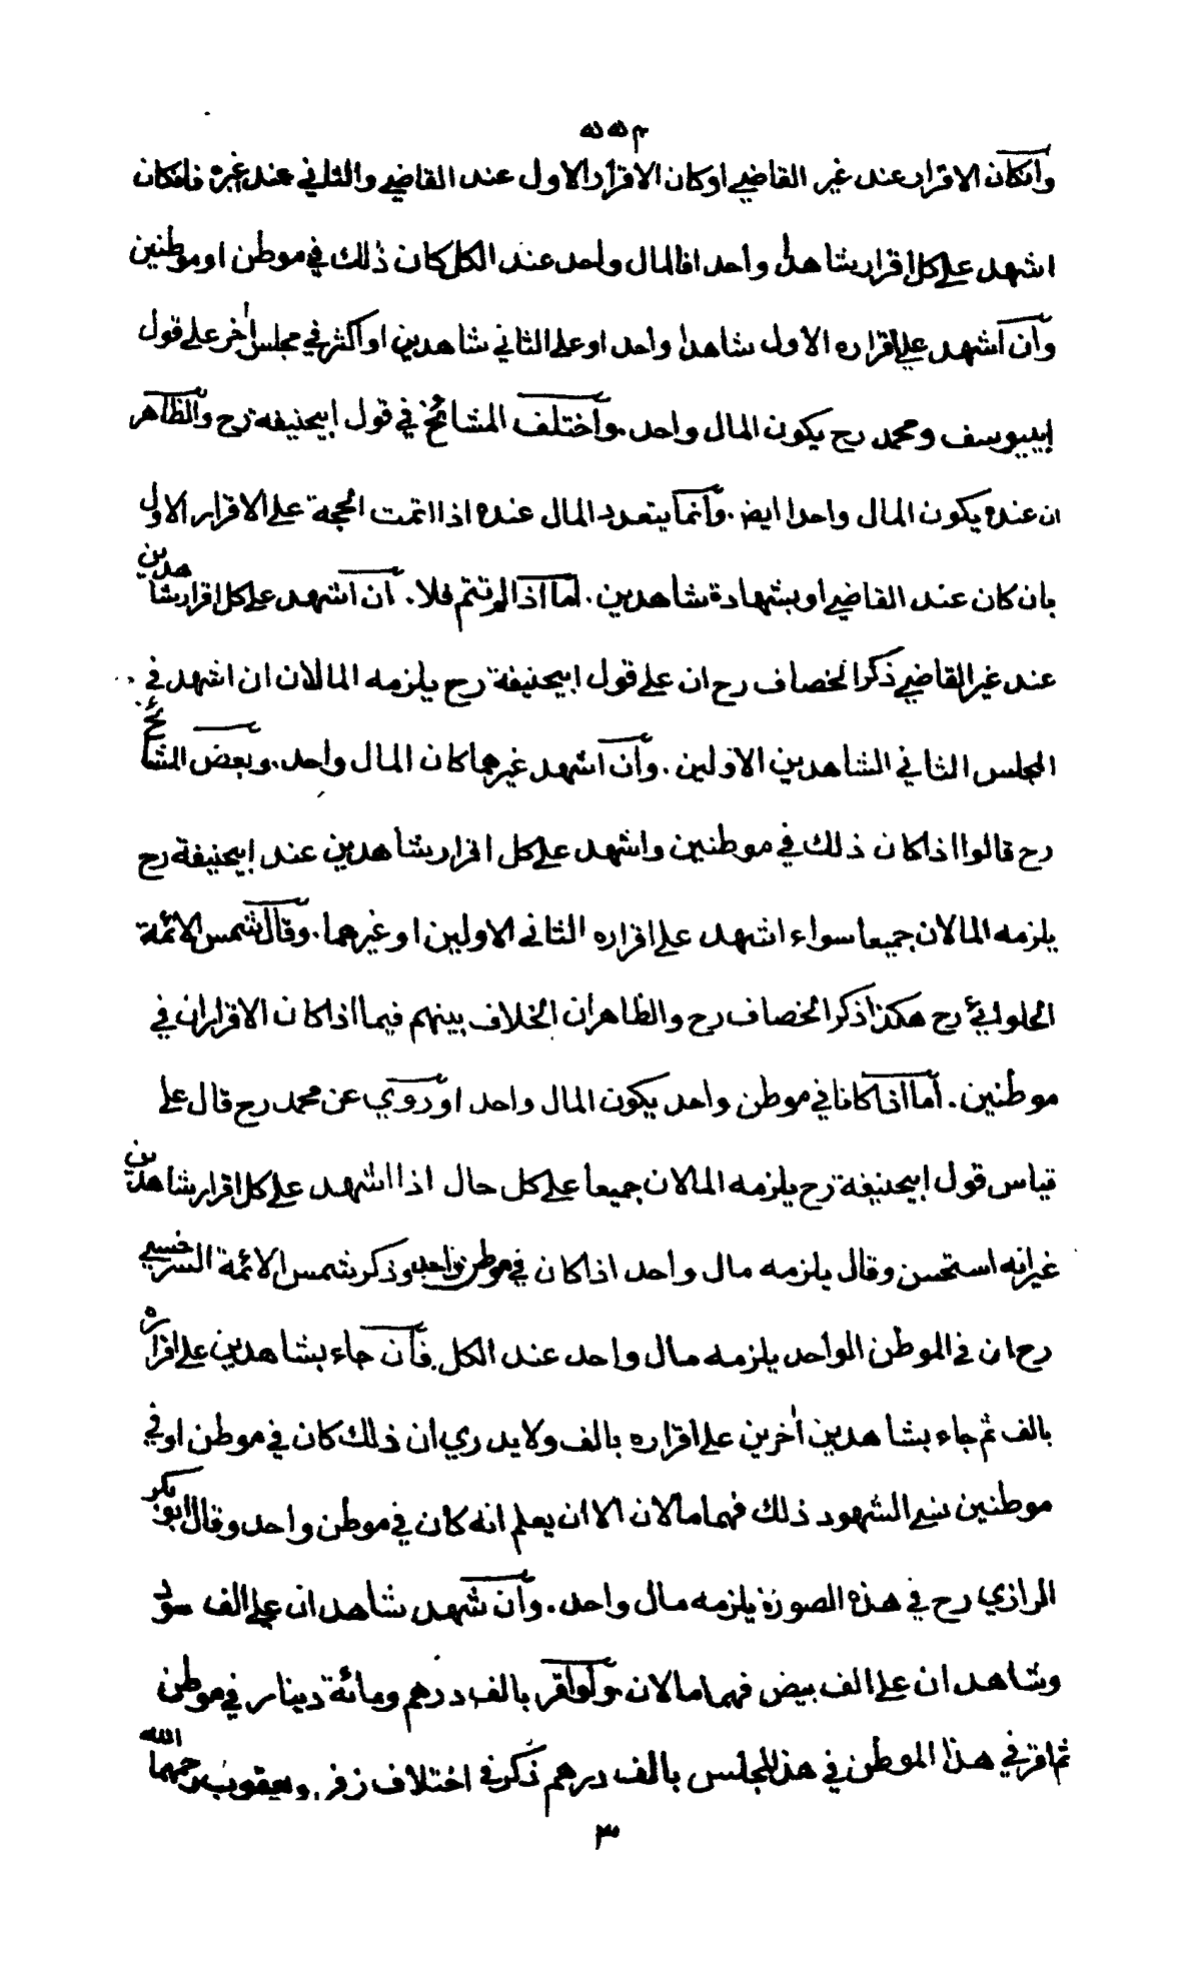 ٢٥٥
وان كان الاقرار عند غير القاضي او كان الاقرار الاول عند القاضي والثاني عند غيره فان كان
اشهد على كل اقرار شاهدا واحدا فالمال واحد عند الكل كان ذلك في موطن او موطنين
وان اشهد على اقراره الاول شاهدا واحد او على الثاني شاهدين او اكثر في مجلس اخر على قول
ابييوسف ومحمد رح يكون المال واحد. واختلف المشائخ في قول ابيحنيفة رح والظاهر
ان عنده يكون المال واحدا ايض. وانما يتعدد المال عنده اذا تمت الحجة على الاقرار الاول
بان كان عند القاضي او بشهادة شاهدين. اما اذا لم تتم فلا. ان اشهد على كل اقرار شاهدين
عند غير القاضي ذكر الخصاف رح ان على قول ابيحنيفة رح يلزمه المالان ان اشهد في
المجلس الثاني الشاهدين الاولين. وان اشهد غيرهما كان المال واحد. وبعض المشائخ
رح قالوا اذا كان ذلك في موطنين واشهد على كل اقرار شاهدين عند ابيحنيفة رح
يلزمه المالان جميعا سواء اشهد على اقراره الثاني الاولين او غيرهما. وقال شمس الائمة
الحلوائي رح هكذا ذكر الخصاف رح والظاهر ان الخلاف بينهم فيما اذا كان الاقراران في
موطنين. اما اذا كانا في موطن واحد يكون المال واحد او روي عن محمد رح قال على
قياس قول ابيحنيفة رح يلزمه المالان جميعا على كل حال اذا اشهد على كل اقرار شاهدين
غير انه استحسن وقال يلزمه مال واحد اذا كان في موطن واحد وذكر شمس الائمة السرخسي
رح ان في الموطن الواحد يلزمه مال واحد عند الكل. فان جاء بشاهدين على اقراره
بالف ثم جاء بشاهدين اخرين على اقراره بالف ولا يدري ان ذلك كان في موطن او في
موطنين نسي الشهود ذلك فهما مالان الا ان يعلم انه كان في موطن واحد وقال ابو بكر
الرازي رح في هذه الصورة يلزمه مال واحد. وان شهد شاهدان على الف سود
وشاهدان على الف بيض فهما مالان. ولو اقر بالف درهم ومائة دينار في موطن
ثم اقر في هذا الموطن في هذا المجلس بالف درهم ذكر في اختلاف زفر ويعقوب رحمهما الله
٣